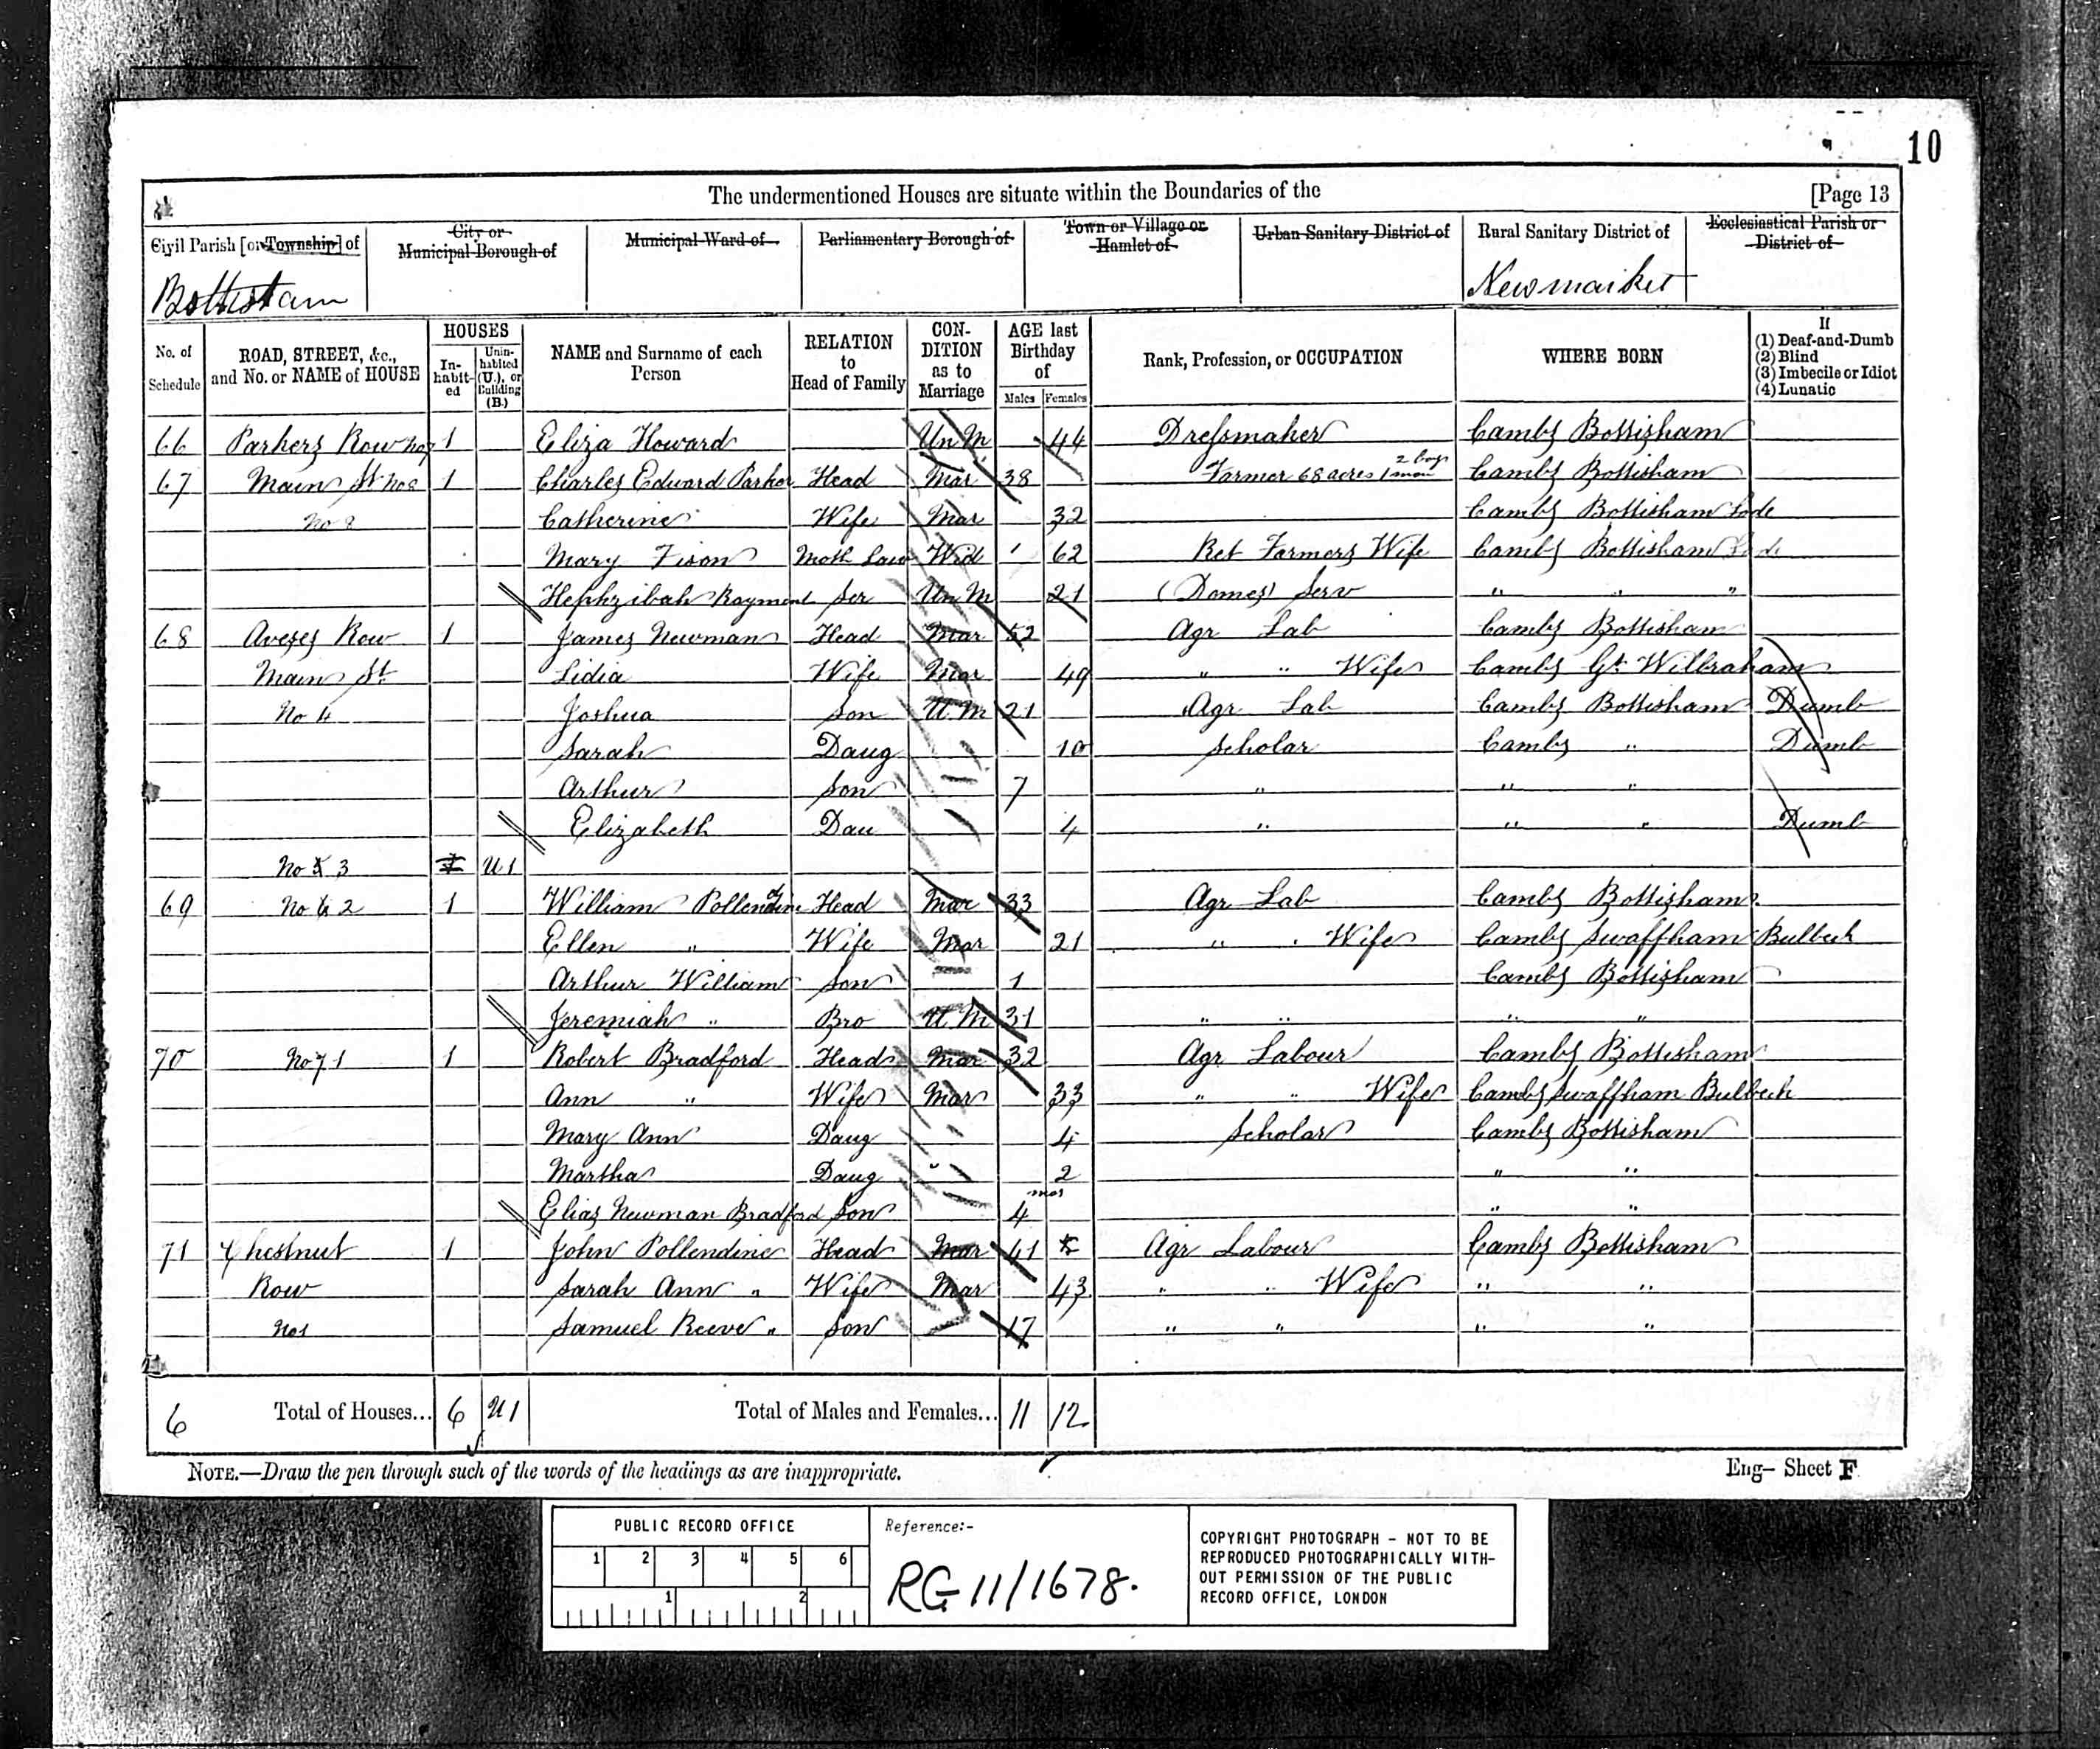 10
The undermentioned Houses are situate within the Boundaries of the [Page 13
Civil Parish [or Township] of
City or Municipal Borough of
Municipal Ward of
Parliamentary Borough of
Town or Village or Hamlet of
Urban Sanitary District of
Rural Sanitary District of
Ecclesiastical Parish or District of
Bottisham
Newmarket
No. of Schedule
ROAD, STREET, &c., and No. or NAME of HOUSE
HOUSES
Inhabited
Uninhabited (U.), or Building (B.)
NAME and Surname of each Person
RELATION to Head of Family
CONDITION as to Marriage
AGE last Birthday of
Males Females
Rank, Profession, or OCCUPATION
WHERE BORN
If
(1) Deaf-and-Dumb
(2) Blind
(3) Imbecile or Idiot
(4) Lunatic
66 Parkers Row No 7 1 Eliza Howard Un M 44 Dressmaker Cambs Bottisham
67 Main St No 8 1 Charles Edward Parker Head Mar 38 Farmer 68 acres 1 man 2 boys Cambs Bottisham
No 8 Catherine Wife Mar 32 Cambs Bottisham Lode
Mary Fison Moth Law Wid 62 Ret Farmers Wife Cambs Bottisham Lode
Hephzibah Rayment Ser Un M 21 (Domes) Serv " " "
68 Aveses Row 1 James Newman Head Mar 52 Agr Lab Cambs Bottisham
Main St Lidia Wife Mar 49 " " Wife Cambs Gt Wilbraham
No 4 Joshua Son U M 21 Agr Lab Cambs Bottisham Dumb
Sarah Daug 10 Scholar Cambs " Dumb
Arthur Son 7 " " "
Elizabeth Dau 4 " " " Dumb
No 3 U 1
69 No 2 1 William Pollendine Head Mar 33 Agr Lab Cambs Bottisham
Ellen " Wife Mar 21 " " Wife Cambs Swaffham Bulbeck
Arthur William Son 1 Cambs Bottisham
Jeremiah " Bro U M 31 " " " "
70 No 7 1 1 Robert Bradford Head Mar 32 Agr Labour Cambs Bottisham
Ann " Wife Mar 33 " " Wife Cambs Swaffham Bulbeck
Mary Ann Daug 4 Scholar Cambs Bottisham
Martha Daug " 2 " "
Elias Newman Bradford Son 4 mos " "
71 Chestnut 1 John Pollendine Head Mar 41 Agr Labour Cambs Bottisham
Row Sarah Ann " Wife Mar 43 " " Wife " "
No 1 Samuel Reeve " Son 17 " " " "
6 Total of Houses... 6 U 1 Total of Males and Females... 11 12
NOTE.—Draw the pen through such of the words of the headings as are inappropriate.
Eng— Sheet F
PUBLIC RECORD OFFICE
1 2 3 4 5 6
1 2
Reference:-
RG 11/1678.
COPYRIGHT PHOTOGRAPH - NOT TO BE
REPRODUCED PHOTOGRAPHICALLY WITH-
OUT PERMISSION OF THE PUBLIC
RECORD OFFICE, LONDON